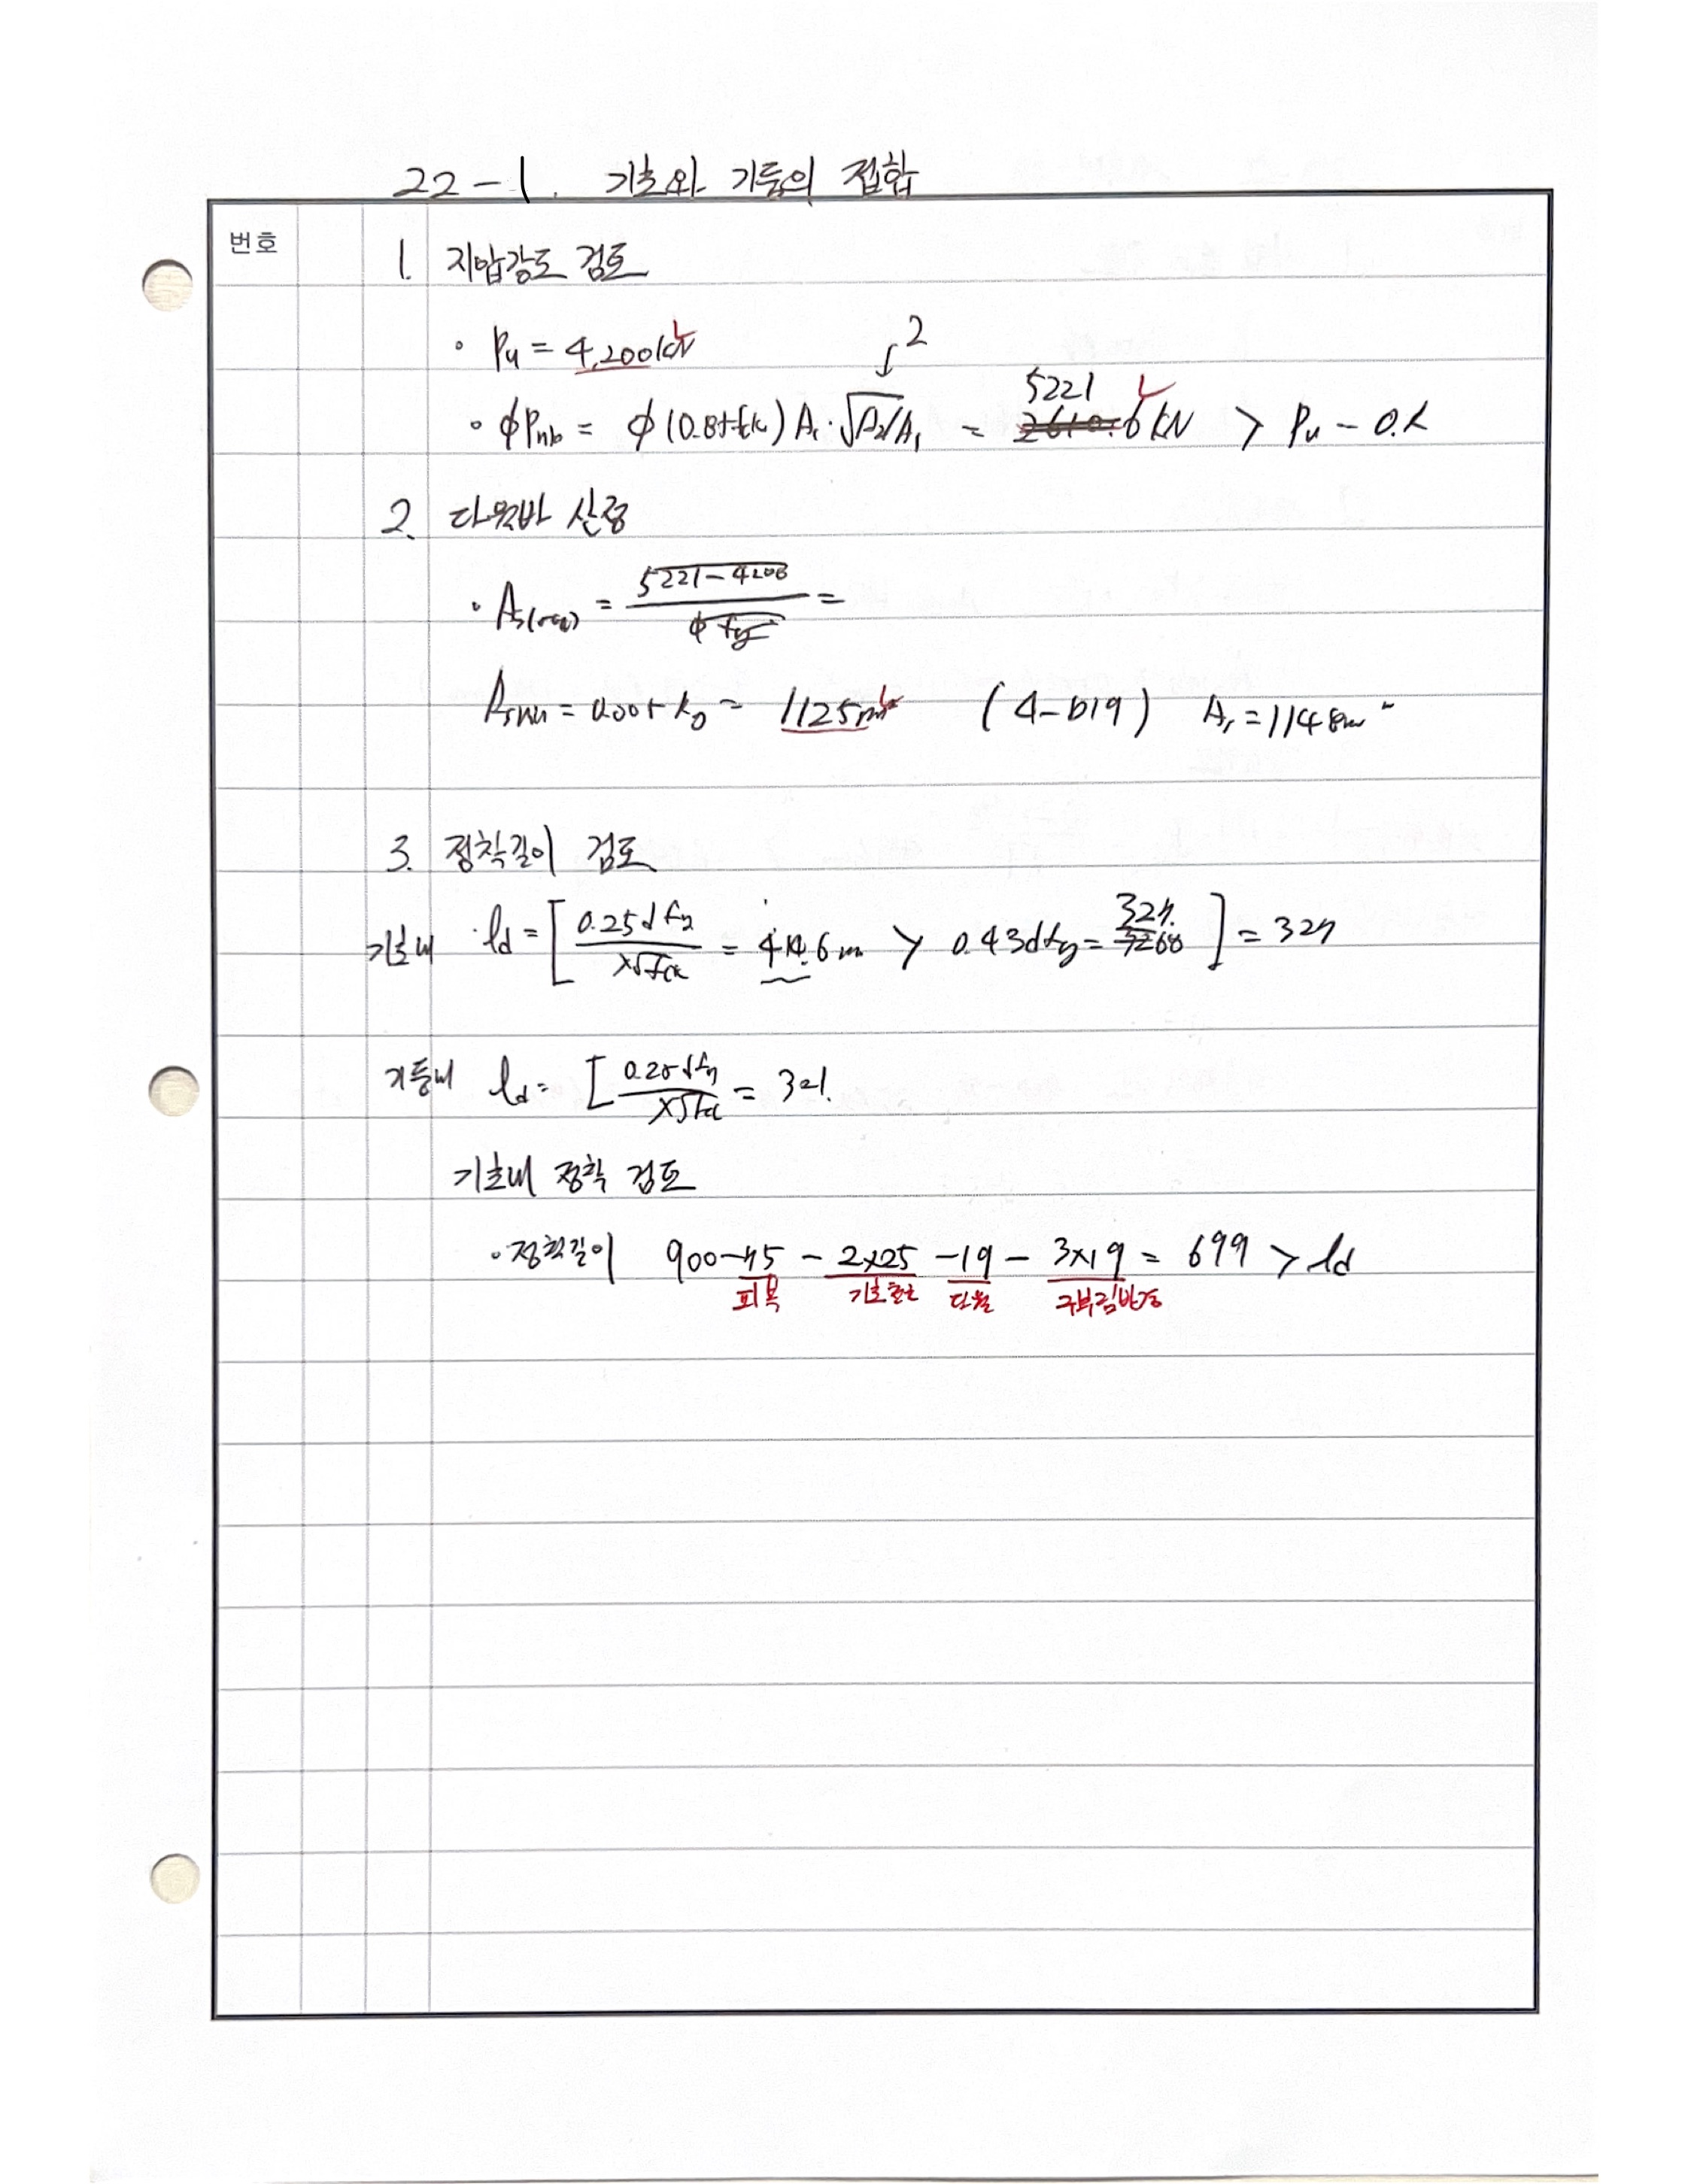 22-1. 기초와 기둥의 접합
번호
1. 지압강도 검토
• Pu = 4,200kN
2
5221
• φPnb = φ(0.85fck) A₁·√A₂/A₁ = 6kN > Pu - O.K
2. 다월바 산정
• As(req) = 5221-4200 / φ fy =
Asmin = 0.005 Ag = 1125mm² (4-D19) As = 1148mm²
3. 정착길이 검토
기초내 ld = [ 0.25d fy / λ√fck = 414.6m > 0.43dfy = 327. ] = 327
기둥내 ld = [ 0.25 dfy / λ√fck = 321.
기초내 정착 검토
• 정착길이 900-75 - 2x25 -19 - 3x19 = 699 > ld
피복 기초철근 다월 구부림반경